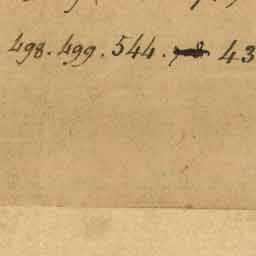 498. 499. 544. 43